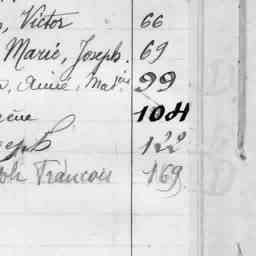 , Victor 66
Marie, Joseph. 69
, Aimé, Ma 99
104
seph 122
ph Francois 169